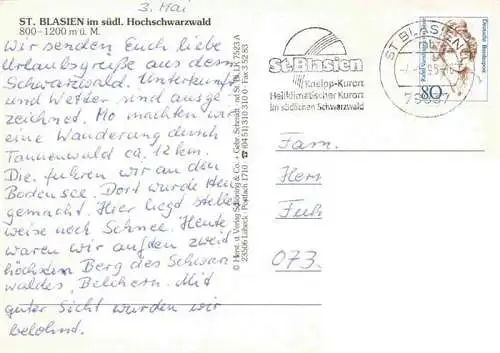 3. Mai
ST. BLASIEN im südl. Hochschwarzwald
800–1200 m ü. M.
Wir senden Euch liebe
Urlaubsgrüße aus dem
Schwarzwald. Unterkunft
und Wetter sind ausge
zeichnet. Mo machten wir
eine Wanderung durch
Tannenwald ca. 12 km.
Die. fuhren wir an den
Bodensee. Dort wurde
gemacht. Hier liegt stelle
weise noch Schnee. Heute
waren wir auf den zweit
höchsten Berg des Schwarz
waldes, Belchern. Mit
guter Sicht wurden wir
belohnt.
© Herst. u. Verlag Schöning & Co. + Gebr. Schmidt
23506 Lübeck · Postfach 1710
St. Blasien
Kneipp-Kurort
Heilklimatischer Kurort
im südlichen Schwarzwald
ST BLASIEN
79837
Deutsche Bundespost
80
Fam.
073.